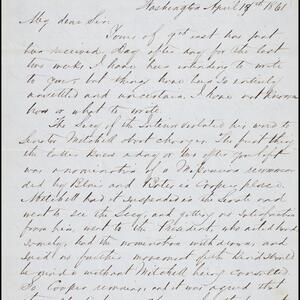 Washington April 19th 1861
My dear Sir
Yours of 9th inst has just
been received. Day after day for the last
two weeks I have been intending to write
to you, but things have been so entirely
unsettled and uncertain I have not known
how or what to write.
The Secy of the Interior violated his word to
Senator Mitchell about . The first thing
the latter knew a day or two after you left
was a nomination of recommen
ded by Blair and Bates in Cooper's place.
Mitchell had it suspended in the Senate and
went to see the Secy, and getting no satisfaction
from him, went to the President, who acted hand
somely, had the nomination withdrawn, and
said no further movement should
be made without Mitchell being consulted.
So Cooper remains, and it was agreed that